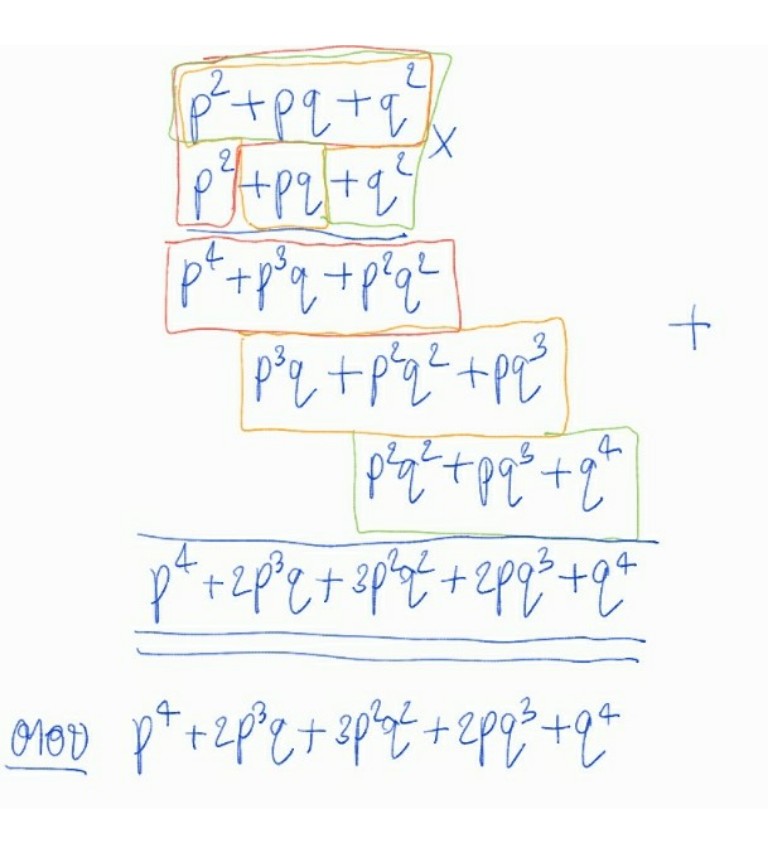 p² + pq + q²
×
p² + pq + q²
p⁴ + p³q + p²q²
+
p³q + p²q² + pq³
p²q² + pq³ + q⁴
p⁴ + 2p³q + 3p²q² + 2pq³ + q⁴
ตอบ p⁴ + 2p³q + 3p²q² + 2pq³ + q⁴